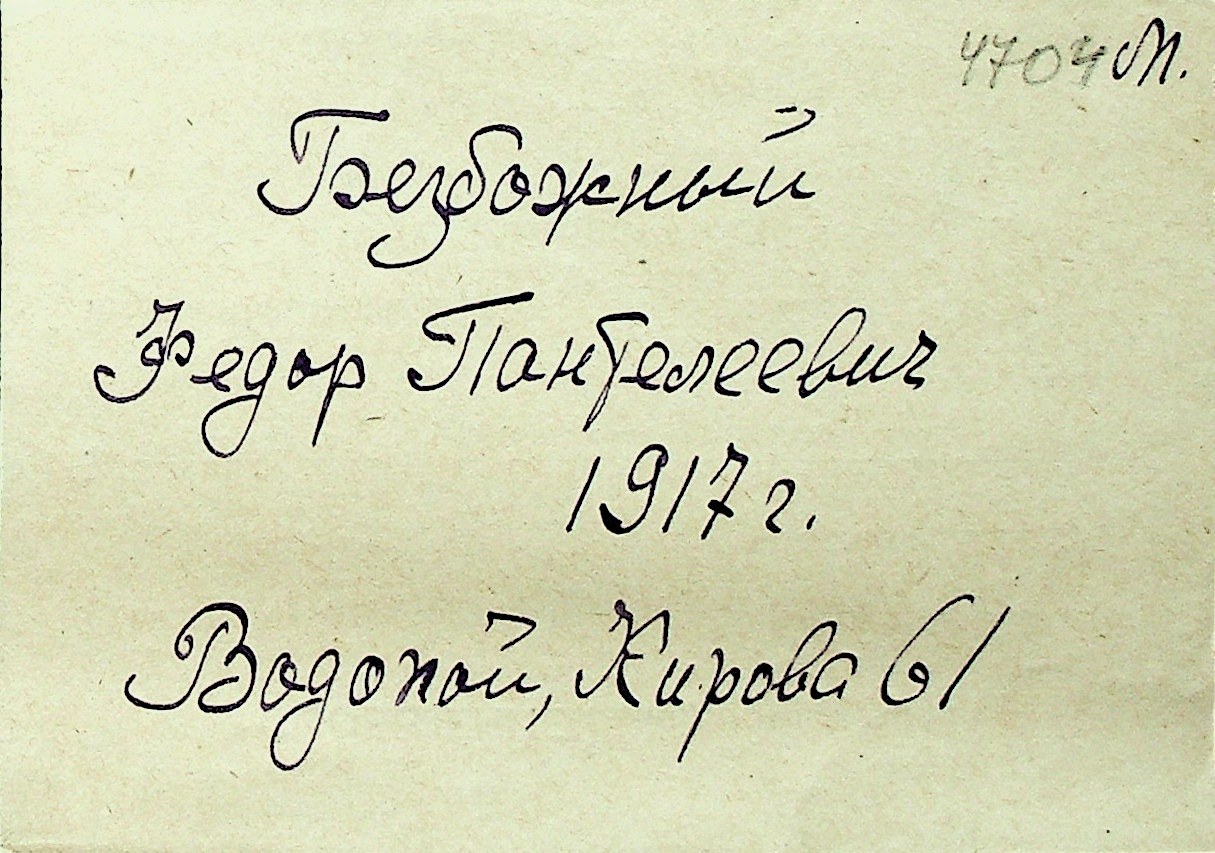 4704 М.
Безбожный
Федор Пантелеевич
1917 г.
Водопой, Кирова 61